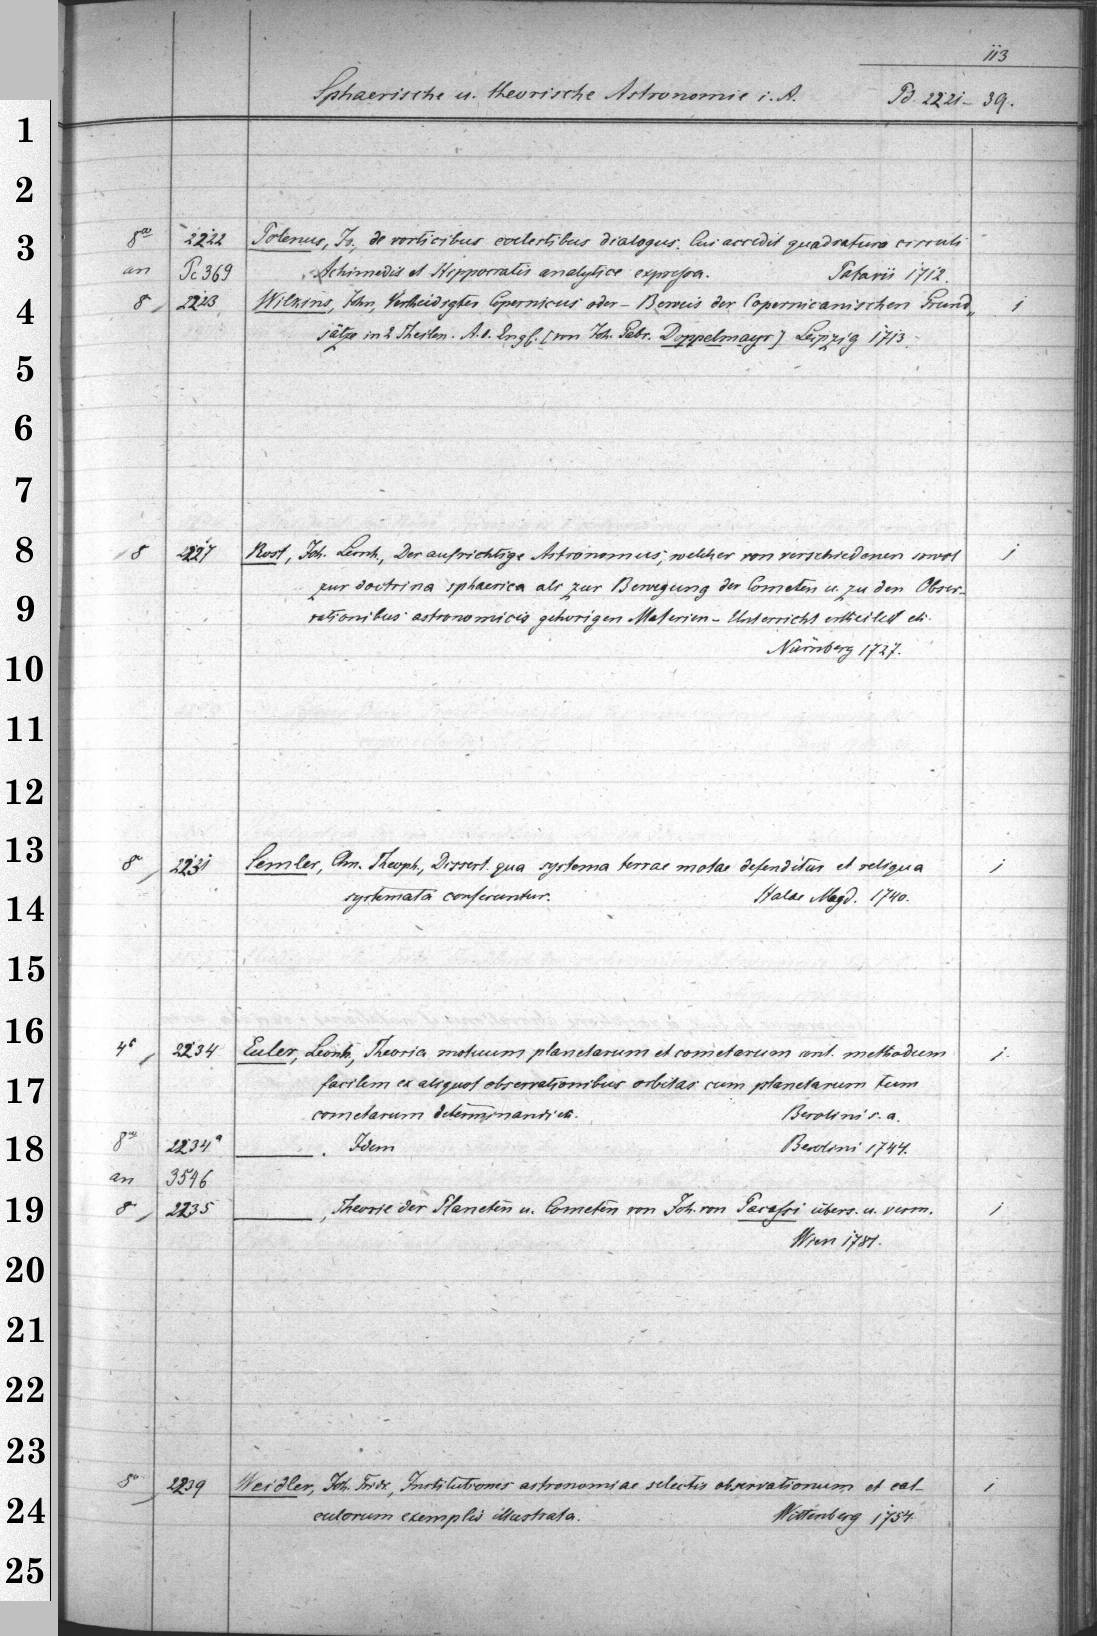 113
Sphaerische u. theorische Astronomie i. A. Pd 2221-39.
1
2
3 8º 2222 Polenus, Jo., de vorticibus coelestibus dialogus. Cui accedit quadratura circuli
an Pc 369 Achimedis et Hippocratis analytice expressa. Patavii 1712.
4 8 2223 Wilkins, John, Vertheidigter Copernicus oder - Beweis der Copernicanischen Grund-
sätze in 2 Theilen. A. d. Engl. [von Joh. Gabr. Doppelmayr] Leipzig 1713. 1
5
6
7
8 8 2227 Rost, Joh. Leonh., Der aufrichtige Astronomus, welcher von verschiedenen sowol 1
9 zur doctrina sphaerica als zur Bewegung der Cometen u. zu den Obser-
vationibus astronomicis gehorigen Materien - Unterricht ertheilet etc.
10 Nürnberg 1727.
11
12
13 8º 2231 Semler, Chn. Theoph., Dissert. qua systema terrae motae defenditur et reliqua 1
14 systemata conferuntur. Halae Magd. 1740.
15
16 4º 2234 Euler, Leonh., Theoria motuum planetarum et cometarum cont. methodum 1
17 facilem ex aliquot observationibus orbitas cum planetarum tum
cometarum determinandi etc. Berolini s. a.
18 8º 2234ª ______. Idem Berolini 1744.
an 3546
19 8 2235 ______, Theorie der Planeten u. Cometen von Joh. von Pacassi übers. u. verm. 1
20 Wien 1781.
21
22
23
24 8º 2239 Weidler, Joh. Fridr., Institutiones astronomiae selectis observationum et cal- 1
culorum exemplis illustrata. Wittenberg 1754
25